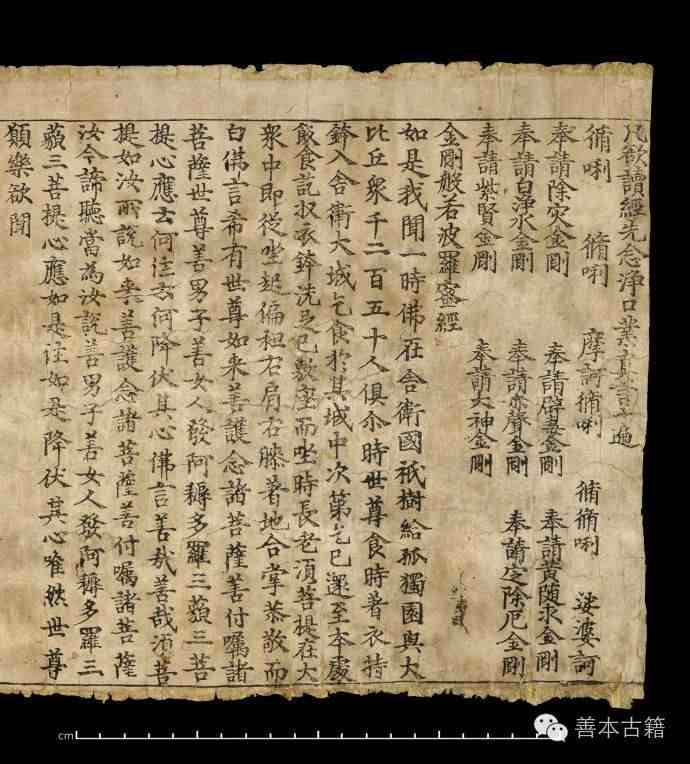 凡欲讀經先念淨口業真言一遍
脩唎 脩唎 摩訶脩唎 脩脩唎 娑婆訶
奉請除灾金剛 奉請辟毒金剛 奉請黃隨求金剛
奉請白淨水金剛 奉請赤聲金剛 奉請定除厄金剛
奉請紫賢金剛 奉請大神金剛
金剛般若波羅蜜經
如是我聞一時佛在舍衛國祇樹給孤獨園與大
比丘衆千二百五十人俱尒時世尊食時著衣持
鉢入舍衛大城乞食於其城中次第乞已還至本處
飯食訖收衣鉢洗足已敷座而坐時長老須菩提在大
衆中即從坐起偏袒右肩右膝著地合掌恭敬而
白佛言希有世尊如来善護念諸菩薩善付囑諸
菩薩世尊善男子善女人發阿耨多羅三藐三菩
提心應云何住云何降伏其心佛言善哉善哉須菩
提如汝所說如来善護念諸菩薩善付囑諸菩薩
汝今諦聽當為汝説善男子善女人發阿耨多羅三
藐三菩提心應如是住如是降伏其心唯然世尊
願樂欲聞
cm
善本古籍